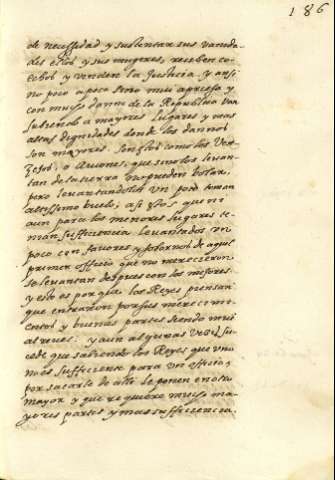 186
de necessidad y sustentar sus vanida
des ellos y sus mugeres, reciben co
echos y venden la Justicia. y ansi
no poco a poco sino mui apriesa y
con mucho danno de la Republica van
subiendo a mayores lugares y mas
altas dignidades donde los dannos
son mayores. Son estos como los Ven
cejos o Aviones, que sino los levan
tan de la tierra no pueden bolar,
pero levantandolos un poco toman
altissimo buelo, asi estos que ni
aun para los menores lugares te
nian sufficiencia levantados un
poco con favores y sobornos de aquel
primer officio que no merecieron
se levantan despues con los mejores
y esto es porque los Reyes piensan
que entraron por sus mereçimi
entos y buenas partes siendo mui
al reues. y aun algunas vezes su
cede que sabiendo los Reyes que uno
no es sufficiente para un officio,
por sacarle de alli le ponen en otro
mayor y que requiere mucho ma
yores partes y mas sufficiencia.